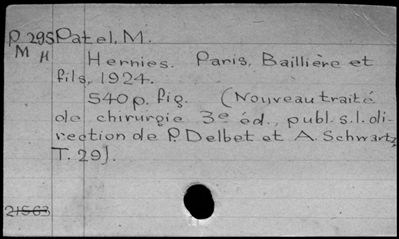 P 295 Patel, M.
M H
Hernies. Paris, Baillière et
fils, 1924.
540 p. fig. (Nouveau traité
de chirurgie 3e éd., publ. s. l. di-
rection de P. Delbet et A. Schwartz
T. 29).
21563